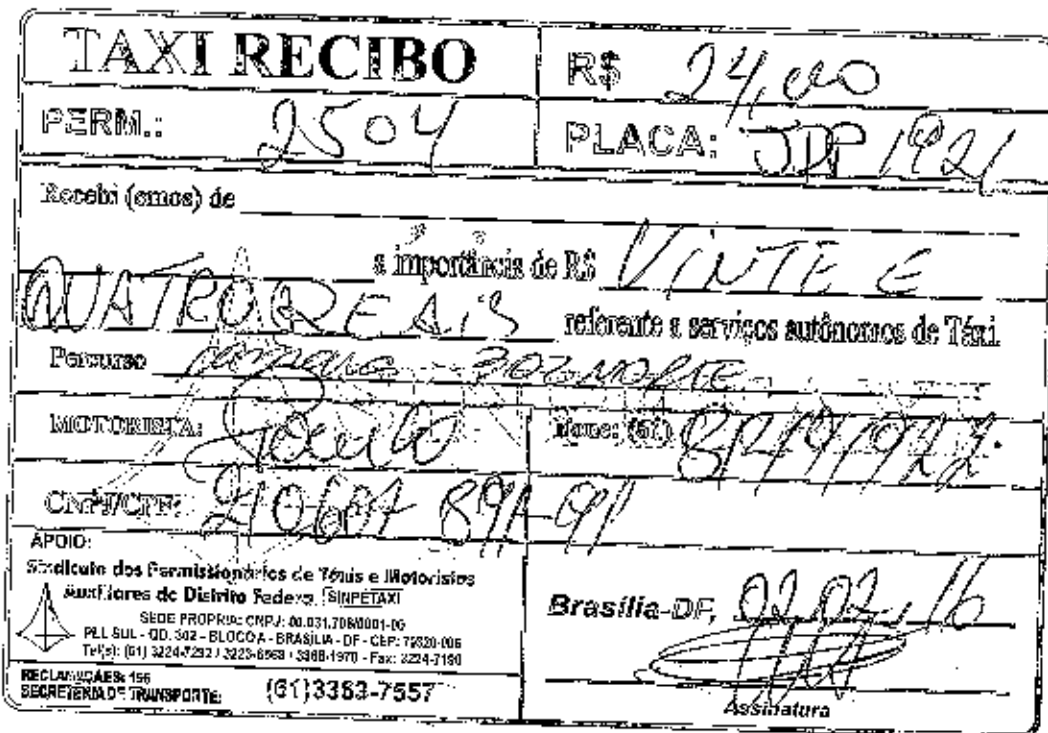 TAXI RECIBO
R$ 24,00
PERM.: 2504
PLACA: JPP 1921
Recebi (emos) de
a importância de R$ VINTE E
QUATRO REAIS referente a serviços autônomos de Táxi
Percurso 302 NORTE
MOTORISTA: Paulo
Fone: (61)
CNPJ/CPF:
APOIO:
Sindicato dos Permissionários de Táxis e Motoristas
Auxiliares do Distrito Federal SINPETAXI
SEDE PROPRIA: CNPJ:
PLL SUL - QD. 302 - BLOCO A - BRASÍLIA - DF - CEP:
Tel(s): (61) 3224-7292 / 3223-6968 / 3368-1970 - Fax: 3224-7190
Brasília-DF, 02,02,16
RECLAMAÇÃES: 156
SECRETERIA DE TRANSPORTE: (61)3383-7557
Assinatura